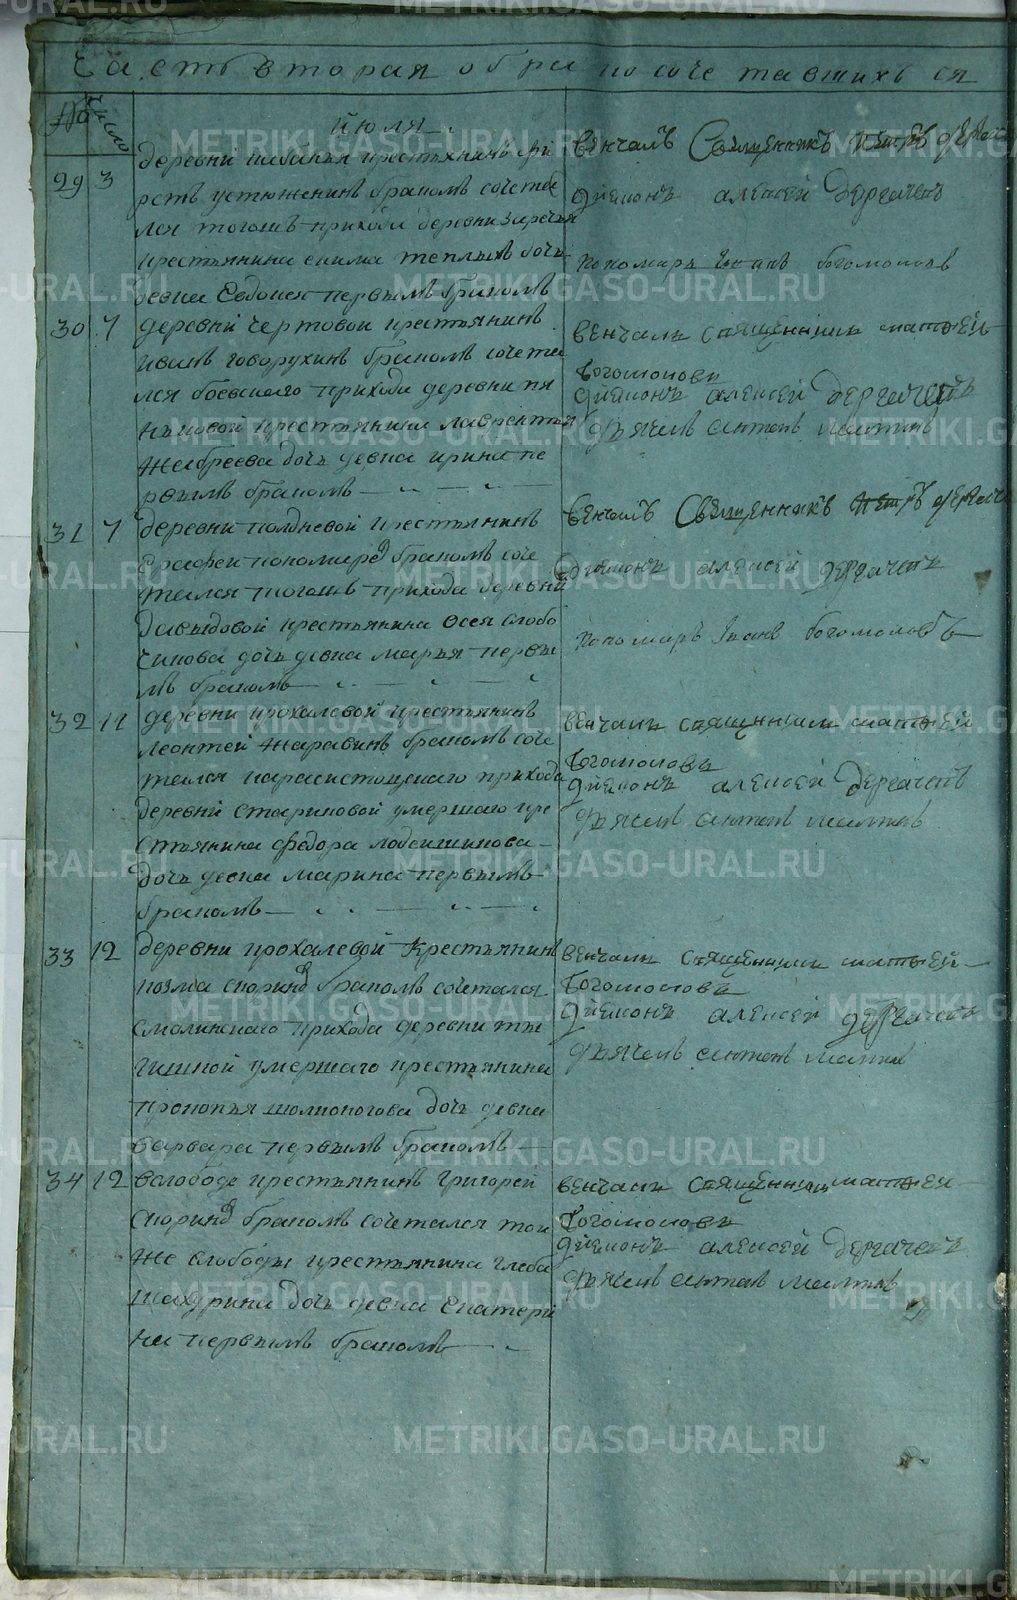 Часть вторая о бракосочетавшихъся
№ число
июля
29 3 деревни крестьянинъ
устюженинъ бракомъ сочета
лся тогожъ прихода деревни заречья
крестьянина екима теплыхъ дочь
девка Евдокея первымъ бракомъ
венчалъ Священникъ Петръ
Дияконъ алексей Дергачевъ
пономарь Иванъ богомоловъ
30 7 деревни чертовои крестьянинъ
иванъ говорухинъ бракомъ сочета
лся боевского прихода деревни пя
нковой крестьянина лаврентья
жабреева дочь девка ирина пе
рвымъ бракомъ
венчалъ священникъ матфей
богомоловъ
дияконъ алексей Дергачевъ
дьячекъ антонъ
31 7 деревни полдневой крестьянинъ
Ерафеи пономаревъ бракомъ соче
тался тогожъ прихода деревни
давыдовой крестьянина осея слобо
чикова дочь девка марья первы
мъ бракомъ
венчалъ Священникъ Петръ
дияконъ алексей дергачевъ
пономарь Иванъ богомоловъ
32 11 деревни прохалевой крестьянинъ
леонтей жаравинъ бракомъ соче
тался прихода
деревни стариковой умершаго кре
стьянина федора лобсишикова
дочь девка марина первымъ
бракомъ
венчалъ священникъ матфей
богомоловъ
дияконъ алексей Дергачевъ
дьячекъ антонъ
33 12 деревни прохалевой крестьянинъ
козма споринъ бракомъ сочетался
смолинского прихода деревни ты
гишной умершаго крестьянина
прокопья толпоногова дочь девка
варвара первымъ бракомъ
венчалъ священникъ матфей
богомоловъ
дияконъ алексей дергачевъ
дьячекъ антонъ
34 12 вслободе крестьянинъ григорей
споринъ бракомъ сочетался тои
же слободы крестьянина глеба
шахурина дочь девка екатери
на первымъ бракомъ
венчалъ священникъ матфей
богомоловъ
дияконъ алексей дергачевъ
дьячекъ антонъ
METRIKI.GASO-URAL.RU